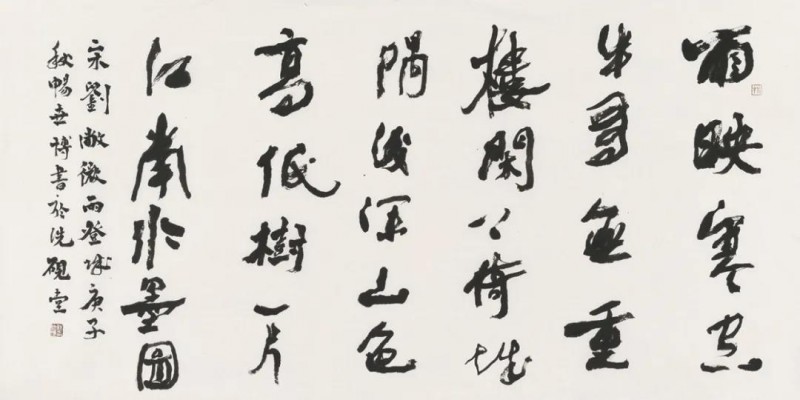 雨映寒空
半有無重
樓閑上倚城
隅淺深山色
高低樹一片
江南水墨圖
宋劉敞微雨登城庚子
秋暢博書於洗硯堂